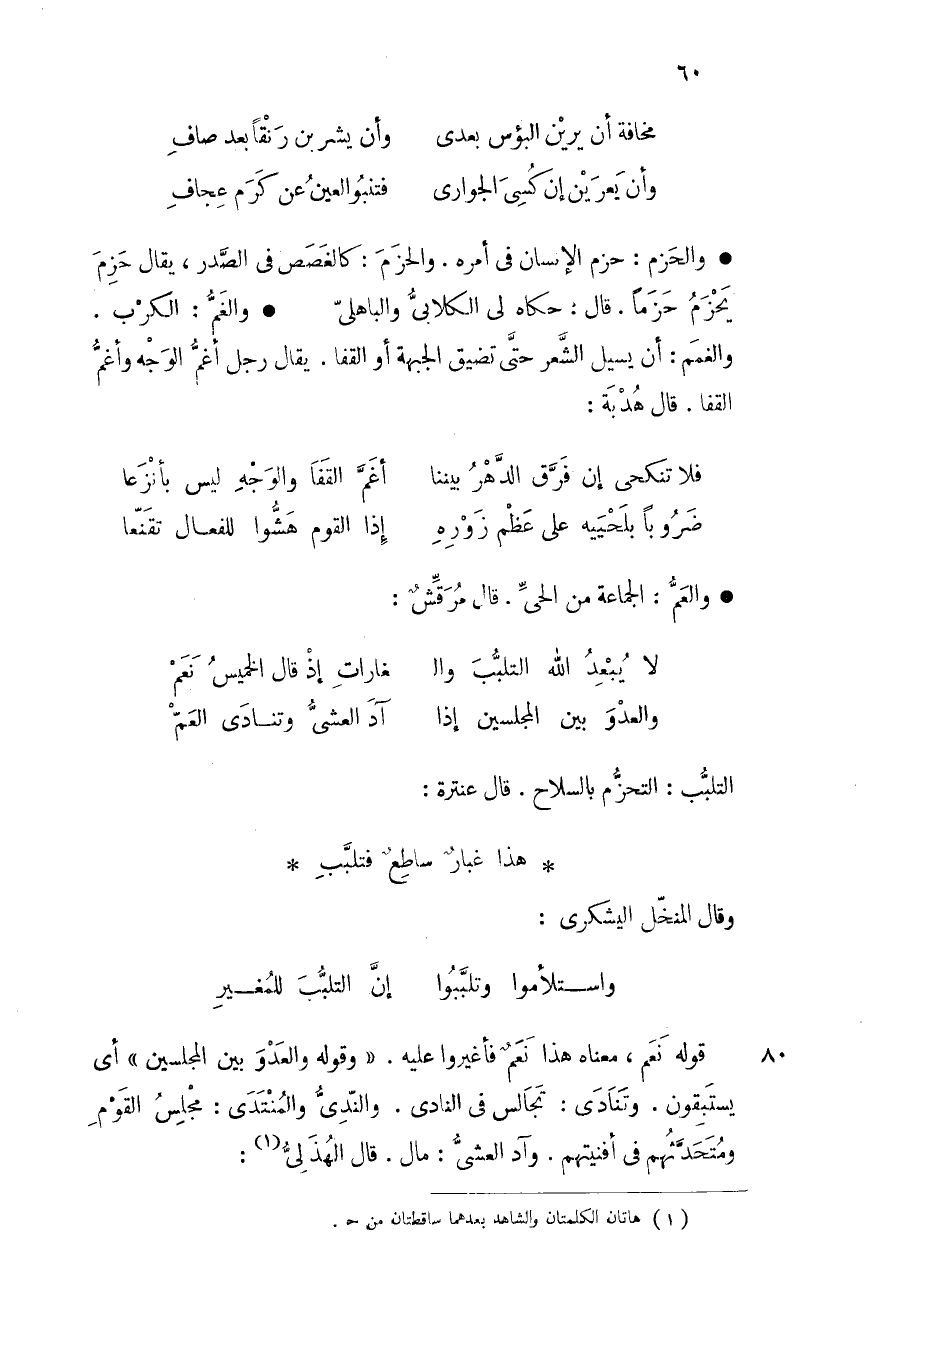 ٦٠
مخافة أن يريْن البؤس بعدى وأن يشربن رَنْقاً بعد صافِ
وأن يَعرَيْن إن كُسِىَ الجوارى فتنبُو العينُ عن كَرَم عِجافِ
● والحَزم : حزم الإنسان فى أمره . والحزَمَ : كالغَصَص فى الصَّدر ، يقال حَزِمَ
يَحْزَمُ حَزَماً . قال : حكاه لى الكلابىُّ والباهلىّ ● والغَمُّ : الكرْب .
والغمَم : أن يسيل الشَّعر حتَّى تضيق الجبهة أو القفا . يقال رجل أغمُّ الوَجْه وأغمُّ
القفا . قال هُدْبَة :
فلا تنكحى إن فَرَّق الدَّهْرُ بيننا أغَمَّ القَفَا والوَجْهِ ليس بأنْزَعا
ضَرُوباً بلَحْيَيه على عَظْم زَوْرِهِ إذا القوم هَشُّوا للفعال تقَنَّعا
● والعَمُّ : الجماعة من الحىِّ . قال مُرَقِّشٌ :
لا يُبْعِدُ الله التلبُّبَ وال غاراتِ إذْ قال الخميسُ نَعَمْ
والعدْوَ بين المجلسين إذا آدَ العشىُّ وتنادَى العَمّْ
التلبُّب : التحزُّم بالسلاح . قال عنترة :
* هذا غبارٌ ساطِعٌ فتلبَّبِ *
وقال المنخّل اليشكرى :
واستلأموا وتلبَّبُوا إنَّ التلبُّبَ للمُغيرِ
٨٠ قوله نَعَم ، معناه هذا نَعَمٌ فأغيروا عليه . « وقوله والعَدْوَ بين المجلسين » أى
يستَبِقون . وتَنَادَى : تَجَالَس فى النادى . والنّدِىُّ والمُنْتَدَى : مجْلِسُ القَوْمِ
ومُتَحَدَّثُهم فى أفنيتهم . وآد العشىُّ : مال . قال الهُذَلِىُّ(١) :
(١) هاتان الكلمتان والشاهد بعدهما ساقطتان من ح .